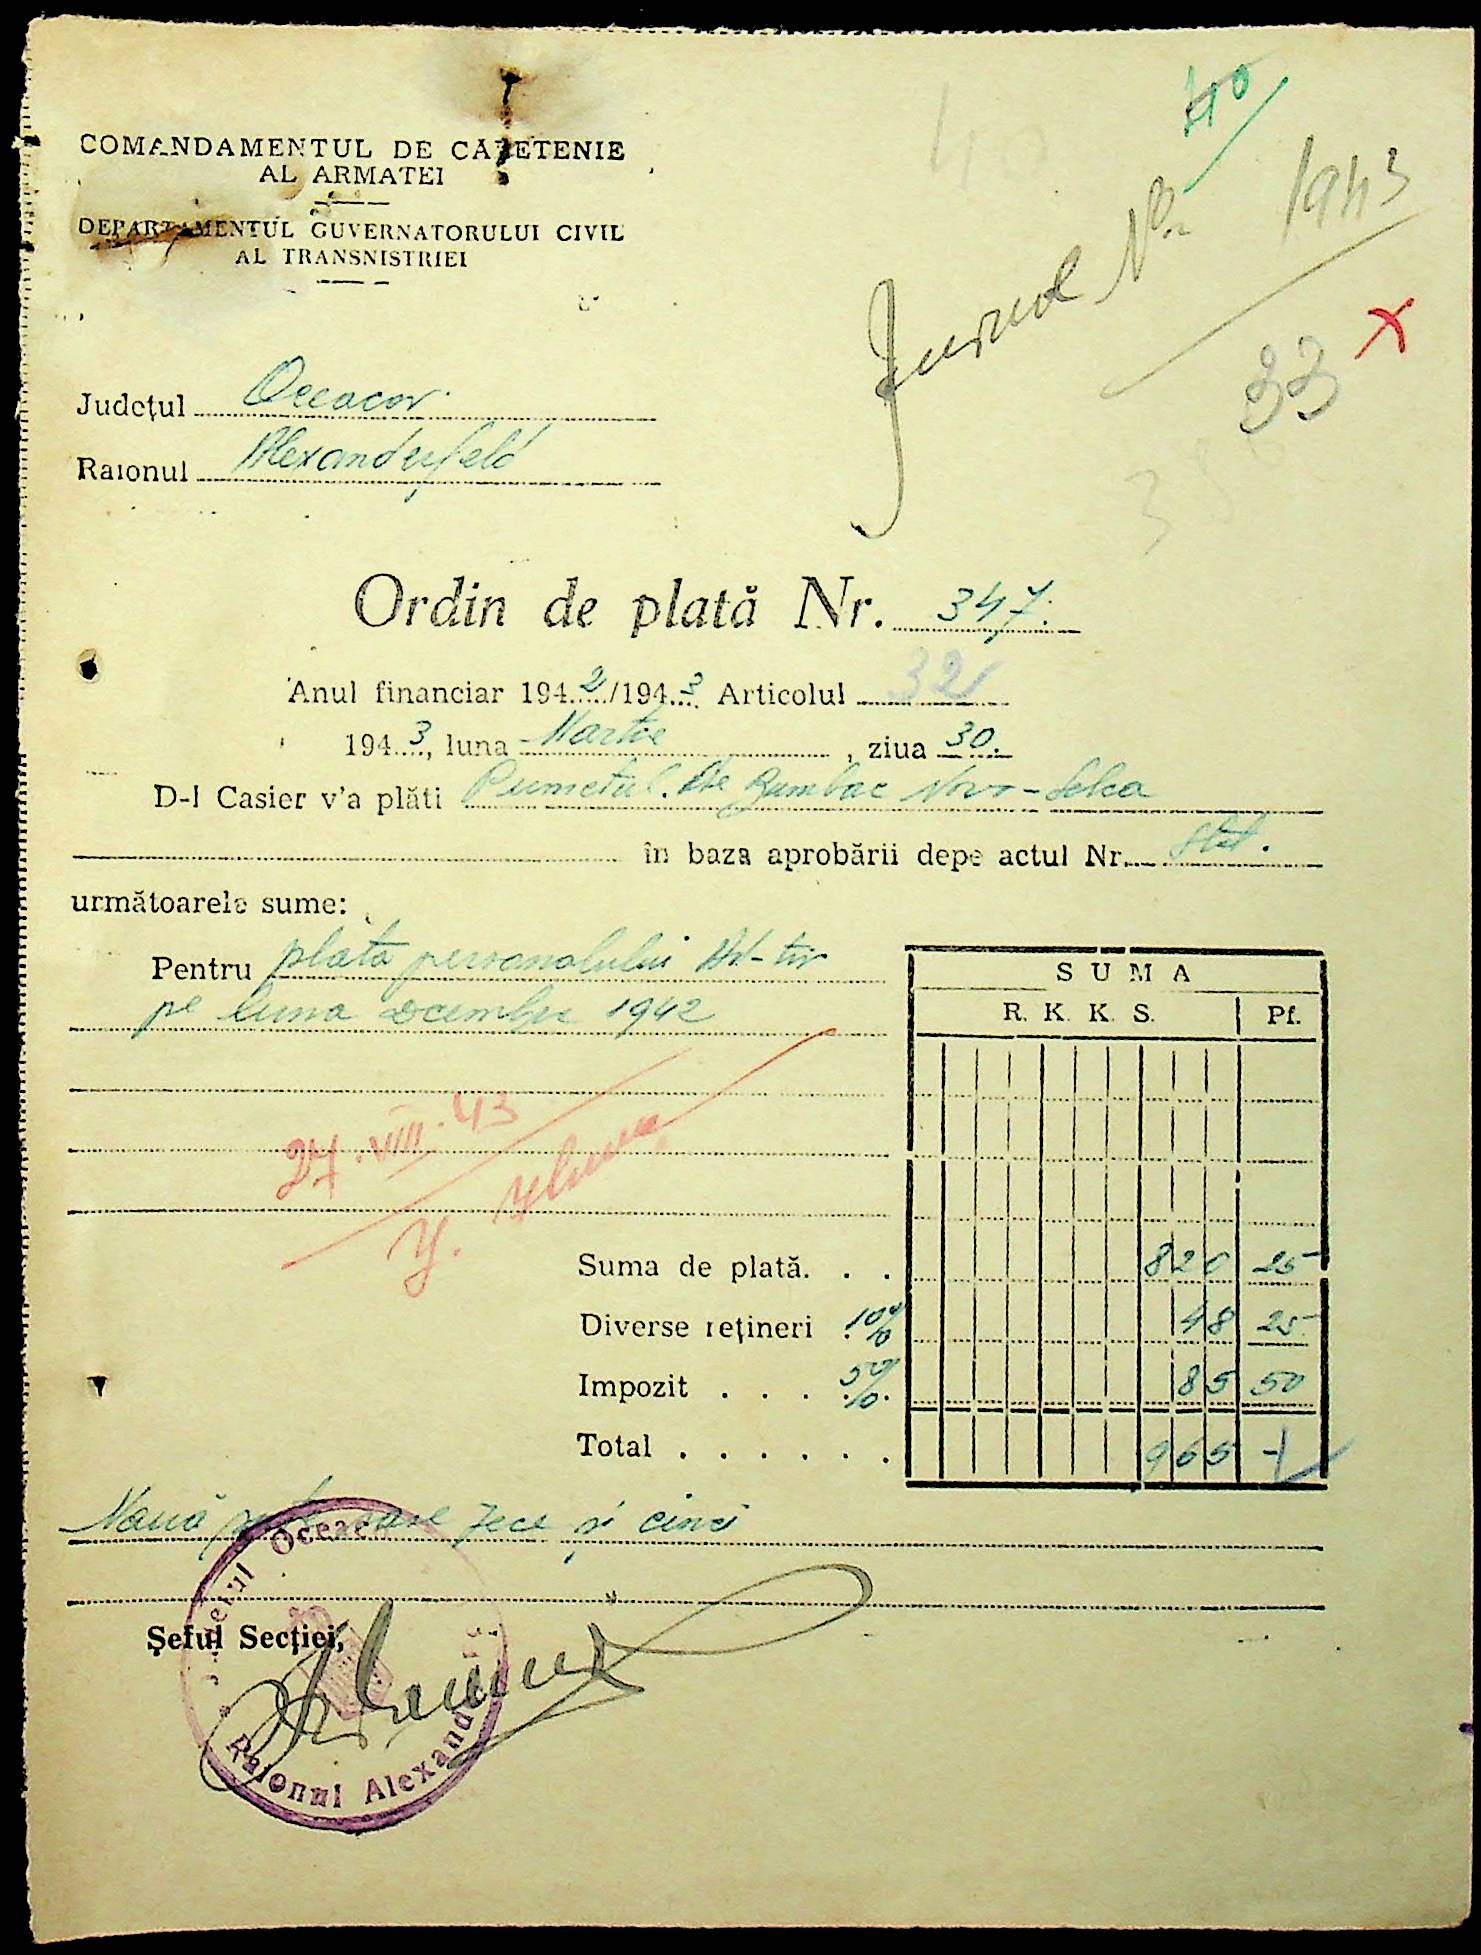 COMANDAMENTUL DE CAPETENIE
AL ARMATEI
DEPARTAMENTUL GUVERNATORULUI CIVIL
AL TRANSNISTRIEI
40
Jurnal No. 1943
33 x
Județul Oceacov
Raionul Alexanderfeld
Ordin de plată Nr. 347.
Anul financiar 1942/1943 Articolul 32
1943, luna Martie, ziua 30.
D-l Casier v'a plăti Punctul de Bumbac Novo-Selca
în baza aprobării depe actul Nr. Stat.
următoarele sume:
Pentru plata personalului
pe luna Decembrie 1942
SUMA
R. K. K. S. Pf.
27.VIII.43
Suma de plată. . . 820 25
Diverse rețineri 10% 48 25
Impozit . . . 5% 85 50
Total . . . . . . 965 -
Nouă sute șase zece și cinci
Șeful Secției,
Județul Oceacov
Raionul Alexand